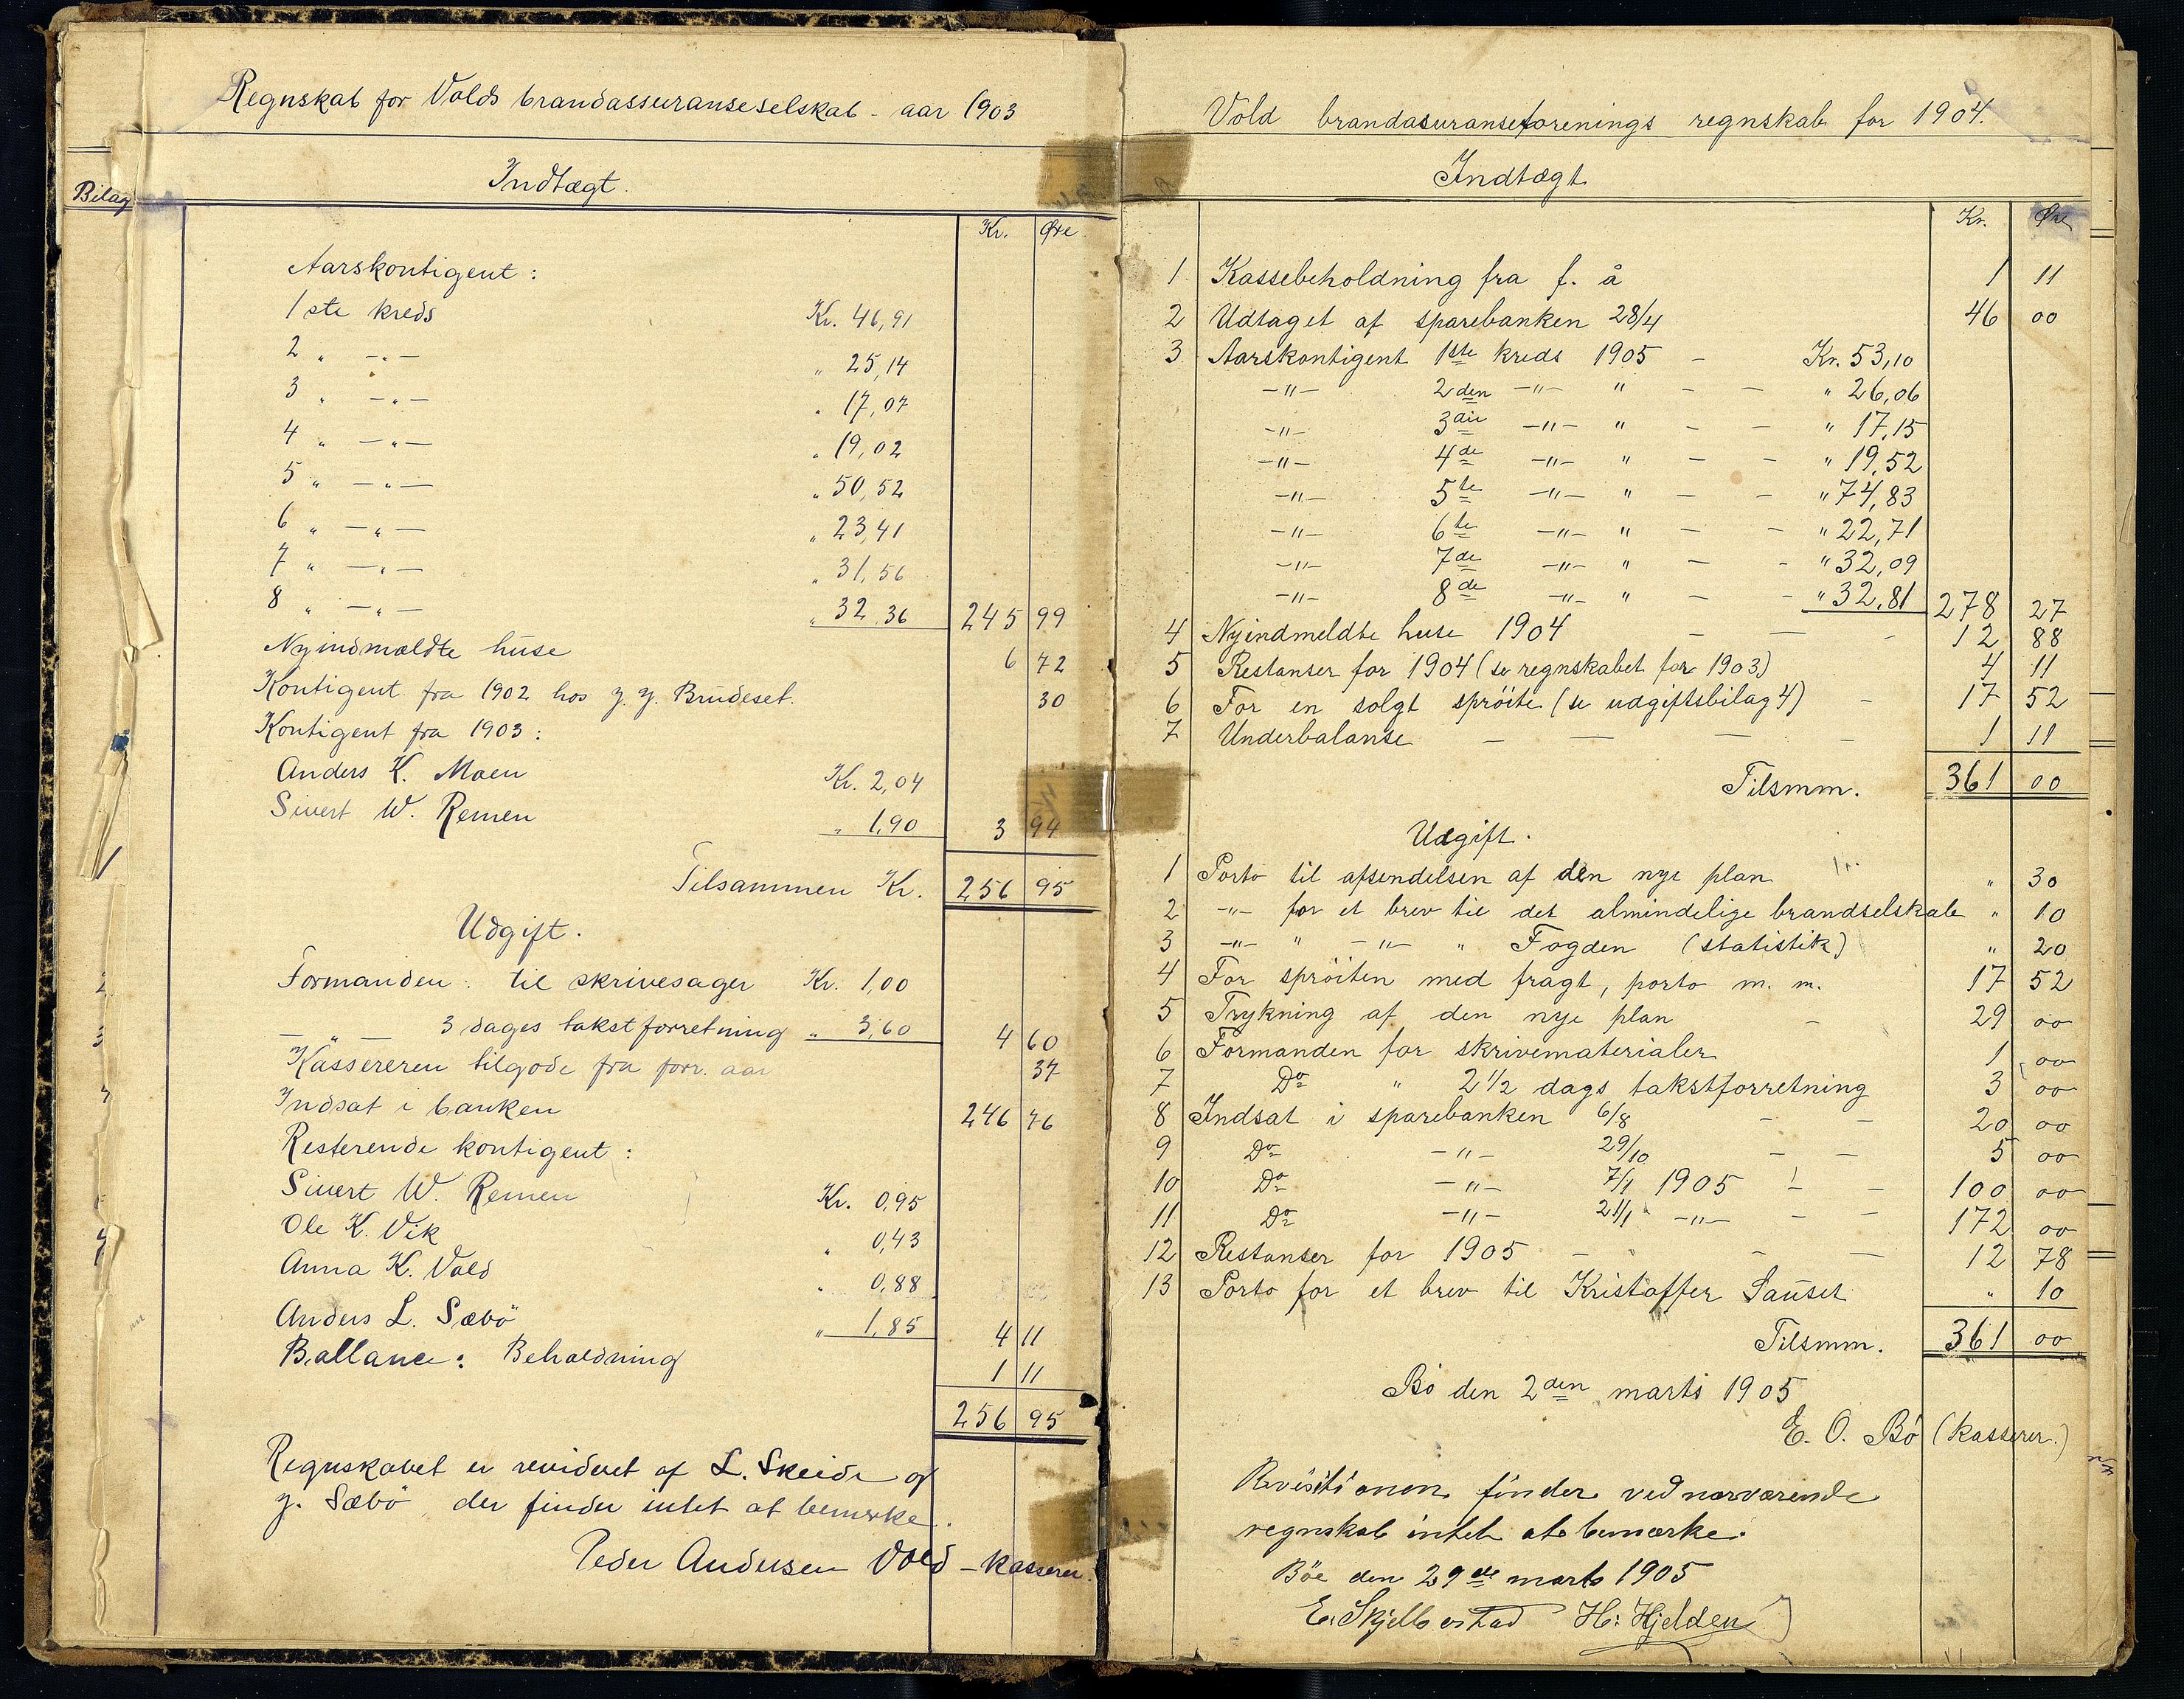 Regnskab for Volds brandassuranseselskab - aar 1903
Bilag
Indtægt.
Kr. Øre
Aarskontigent:
1ste kreds Kr. 46,91
2 " -"- " 25,14
3 " -"- " 17,07
4 " -"- " 19,02
5 " -"- " 50,52
6 " -"- " 23,41
7 " -"- " 31,56
8 " -"- " 32,36 245 99
Nyindmældte huse 6 72
Kontigent fra 1902 hos J. J. Brudeset. 30
Kontigent fra 1903:
Anders K. Moen Kr. 2,04
Sivert W. Remen " 1,90 3 94
Tilsammen Kr. 256 95
Udgift.
Formanden: til skrivesager Kr. 1,00
-"- 3 dages takstforretning " 3,60 4 60
Kassereren tilgode fra forr. aar 37
Indsat i banken 246 76
Resterende kontigent:
Sivert W. Remen Kr. 0,95
Ole K. Vik " 0,43
Anna K. Vold " 0,88
Anders L. Sæbö " 1,85 4 11
Ballance: Beholdning 1 11
256 95
Regnskabet er revideret af L. Skeide og
J. Sæbö der finder intet at bemerke.
Peder Andersen Vold - kasserer.
Vold brandasuranseforenings regnskab for 1904.
Indtægt
Kr. Øre
1 Kassebeholdning fra f. å 1 11
2 Udtaget af sparebanken 28/4 46 00
3 Aarskontigent 1ste kreds 1905 - Kr. 53,10
-"- 2den -"- " - - " 26,06
-"- 3die -"- " - - " 17,15
-"- 4de -"- " - - " 19,52
-"- 5te -"- " - - " 74,83
-"- 6te -"- " - - " 22,71
-"- 7de -"- " - - " 32,09
-"- 8de -"- " - - " 32,81 278 27
4 Nyindmeldte huse 1904 - - - 12 88
5 Restanser for 1904 (se regnskabet for 1903) 4 11
6 For en solgt spröite (se udgiftsbilag 4) - 17 52
7 Underbalanse - - - - 1 11
Tilsmm. 361 00
Udgift.
1 Porto til afsendelsen af den nye plan " 30
2 -"- for et brev til det almindelige brandselskab " 10
3 -"- " -"- " Fogden (statistik) " 20
4 For spröiten med fragt, porto m. m. 17 52
5 Trykning af den nye plan - 29 00
6 Formanden for skrivematerialer 1 00
7 Do " 2 1/2 dags takstforretning 3 00
8 Indsat i sparebanken 6/8 - - 20 00
9 Do -"- 29/10 - - 5 00
10 Do -"- 7/1 1905 - - 100 00
11 Do -"- 21/1 -"- - - 172 00
12 Restanser for 1905 - - - - 12 78
13 Porto for et brev til Kristoffer Sauset " 10
Tilsmm. 361 00
Bö den 2den marts 1905
E. O. Bö (kasserer.)
Revisitionen finder ved nærværende
regnskab intet at bemærke.
Böe den 29de marts 1905
E. Skjelbostad H. Hjelden